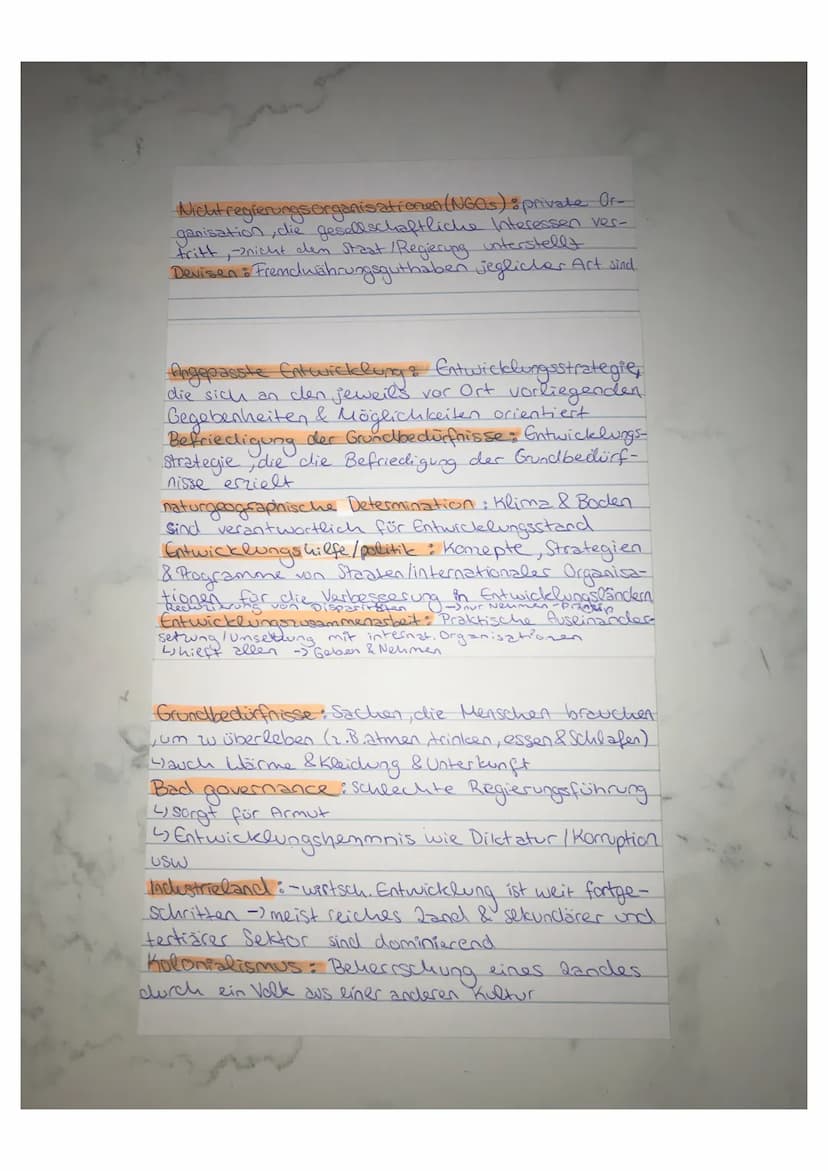 Nichtregierungsorganisationen (NGOs): private Or-
ganisation, die gesellschaftliche Interessen ver-
tritt, →nicht dem Staat/Regierung unterstellt
Devisen: Fremdwährungsguthaben jeglicher Art sind
Angepasste Entwicklung: Entwicklungsstrategie,
die sich an den jeweils vor Ort vorliegenden
Gegebenheiten & Möglichkeiten orientiert
Befriedigung der Grundbedürfnisse: Entwicklungs-
strategie, die die Befriedigung der Grundbedürf-
nisse erzielt
naturgeographische Determination: Klima & Boden
sind verantwortlich für Entwicklungsstand
Entwicklungshilfe/politik: Konzepte, Strategien
& Programme von Staaten/internationaler Organisa-
tionen für die Verbesserung in Entwicklungsländern
Reduzierung von Disparitäten →nur Nehmen-Prinzip
Entwicklungszusammenarbeit: Praktische Auseinander-
setzung/Umsetzung mit internat. Organisationen
↳hilft allen → Geben & Nehmen
Grundbedürfnisse: Sachen, die Menschen brauchen
,um zu überleben (z.B. atmen, trinken, essen & Schlafen)
↳auch Wärme & Kleidung & Unterkunft
Bad governance: schlechte Regierungsführung
↳ sorgt für Armut
↳ Entwicklungshemmnis wie Diktatur/Korruption
usw
Industrieland: -wirtsch. Entwicklung ist weit fortge-
schritten → meist reiches Land & sekundärer und
tertiärer Sektor sind dominierend
Kolonialismus: Beherrschung eines Landes
durch ein Volk aus einer anderen Kultur